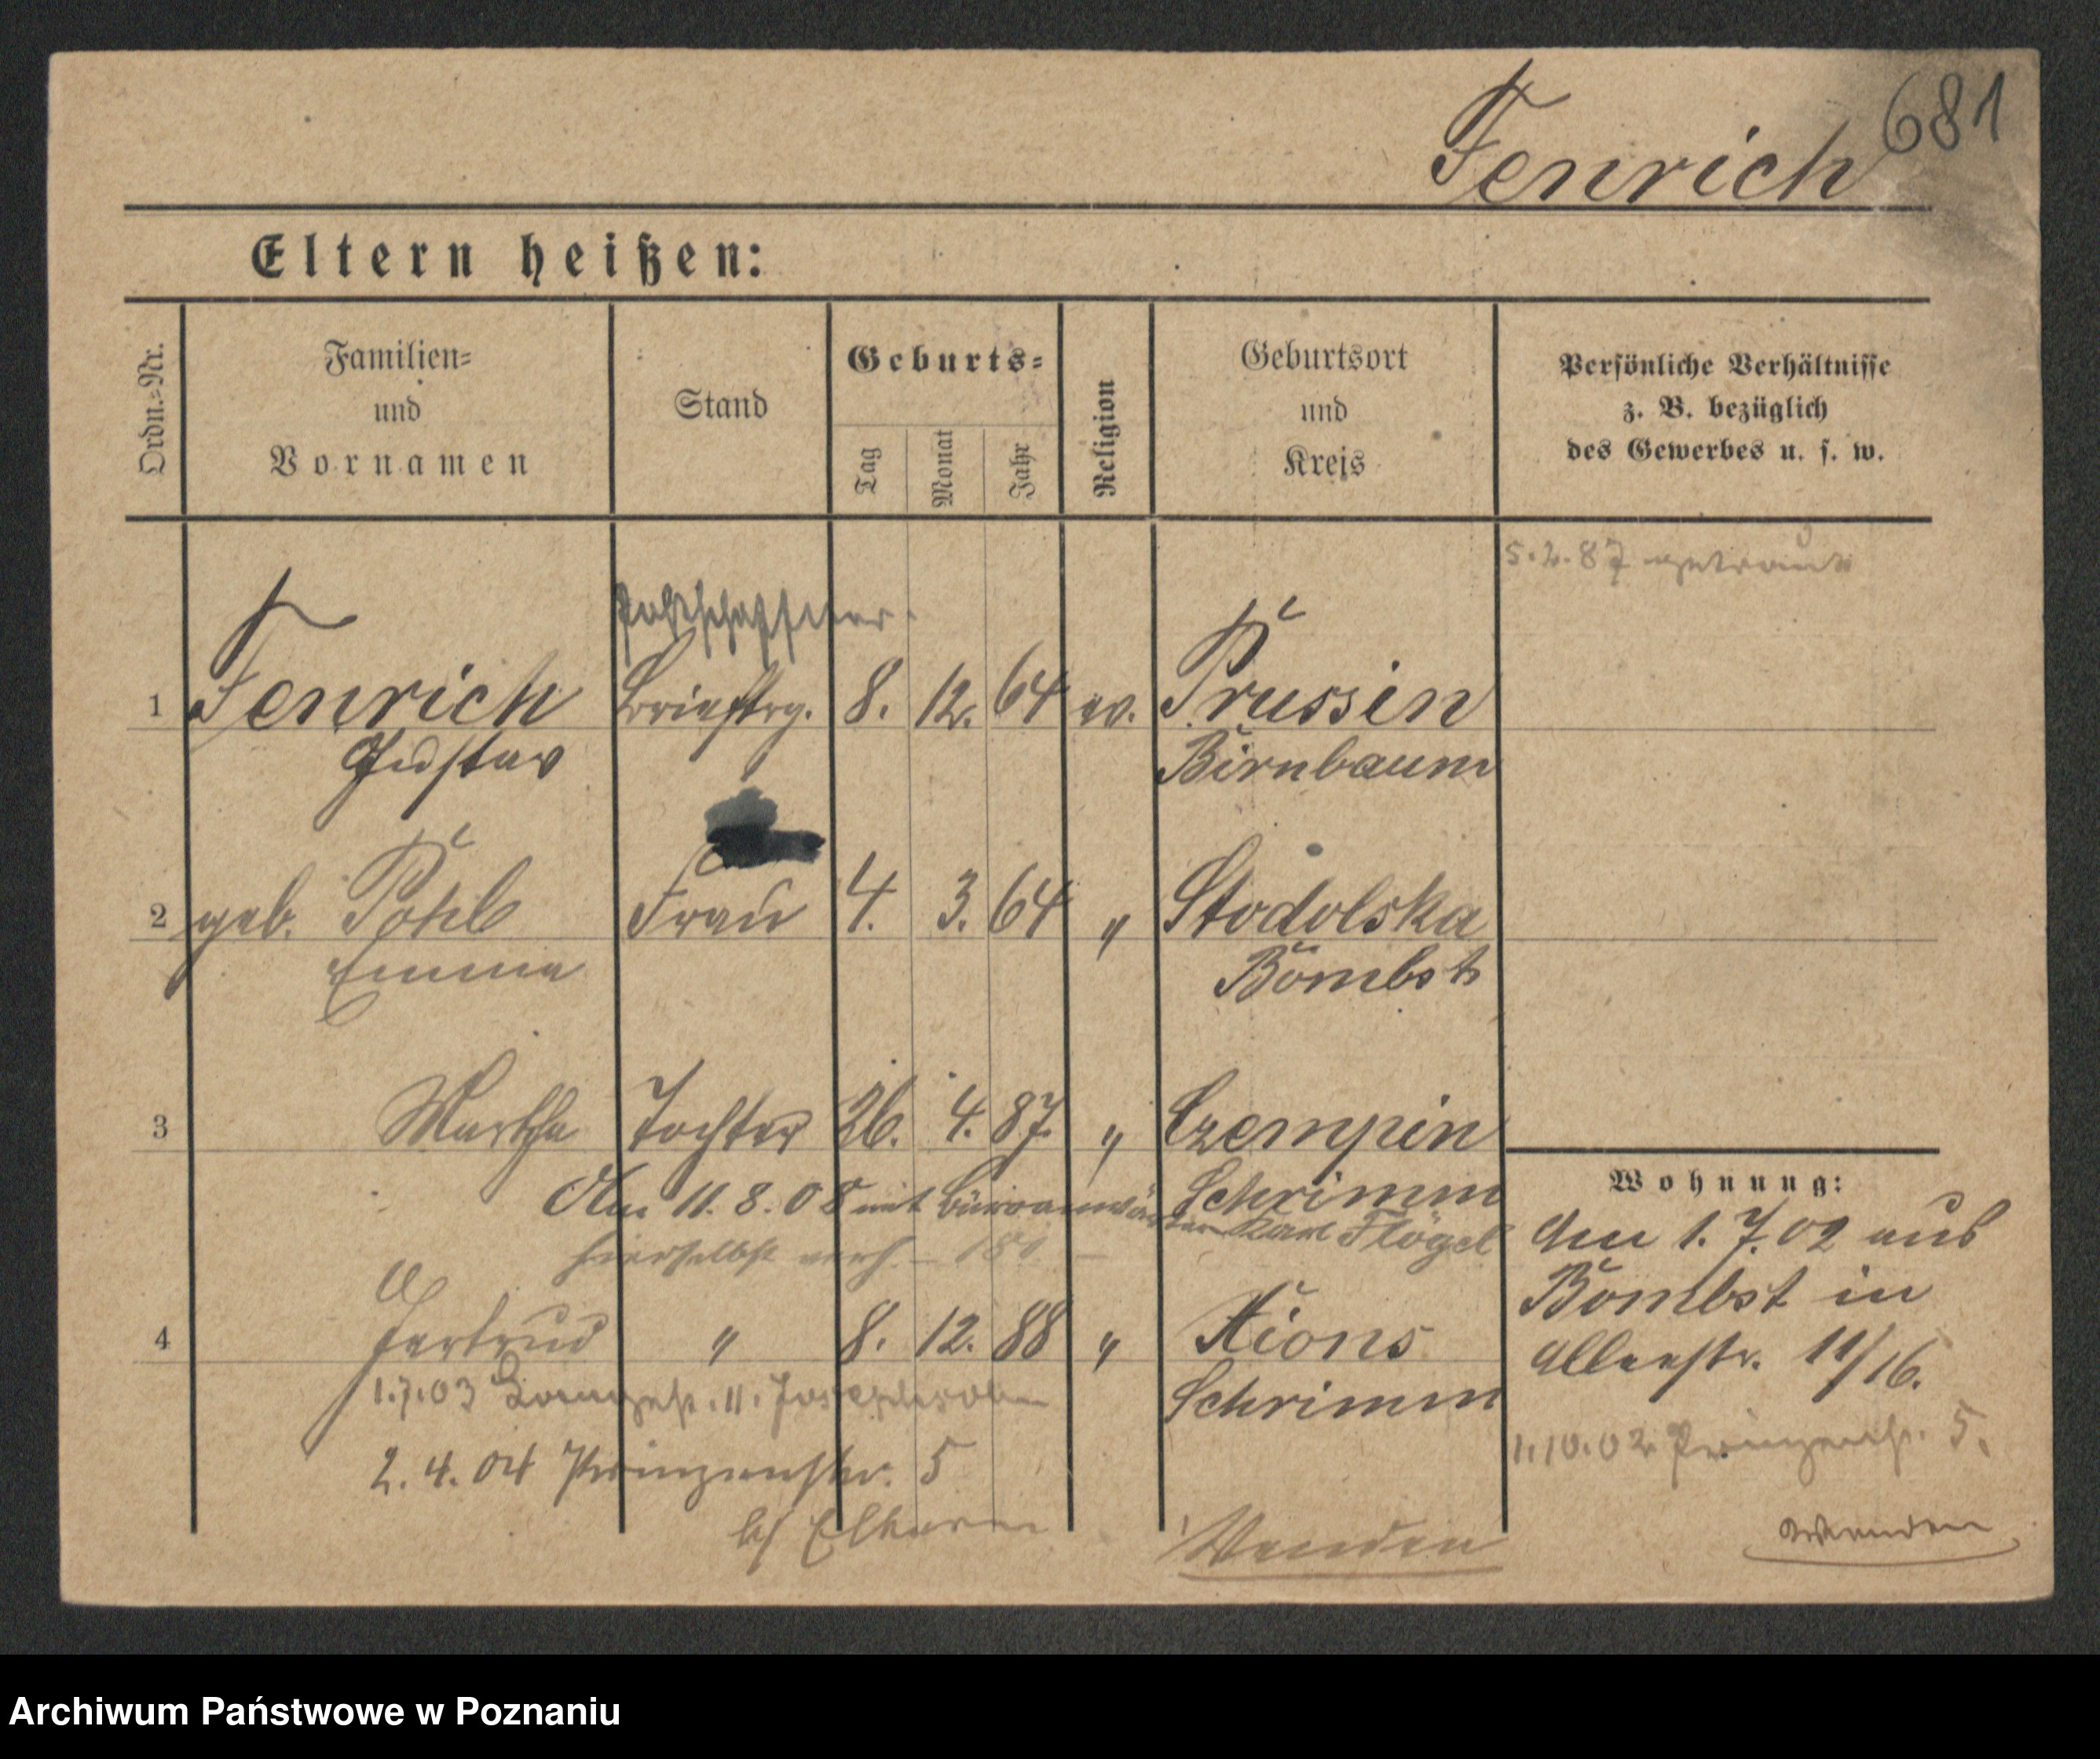 681
Fenrich
Eltern heißen:
Ordn.=Nr.
Familien=
und
Vornamen
Stand
Geburts=
Tag
Monat
Jahr
Religion
Geburtsort
und
Kreis
Persönliche Verhältnisse
z. B. bezüglich
des Gewerbes u. s. w.
5.2.87 getraut
Postschaffner
1 Fenrich Brieftrg. 8. 12. 64 ev. Prussin
Gustav Birnbaum
2 geb. Pohl Frau 4. 3. 64 " Stodolska
Emma Bombst
3 Martha Tochter 26. 4. 87. " Czempin
Schrimm
Am 11.8.08 mit Büroanwärter Karl Flögel
hierselbst verh.
4 Gertrud " 8. 12. 88 " Xions
Schrimm
1.7.03 11. Josephsohn
2.4.04 Prinzenstr. 5
b/ Eltern
Wenden
Wohnung:
Am 1.7.02 aus
Bombst in
Allerstr. 11/16.
1.10.02 Prinzenstr. 5.
Wenden
Archiwum Państwowe w Poznaniu